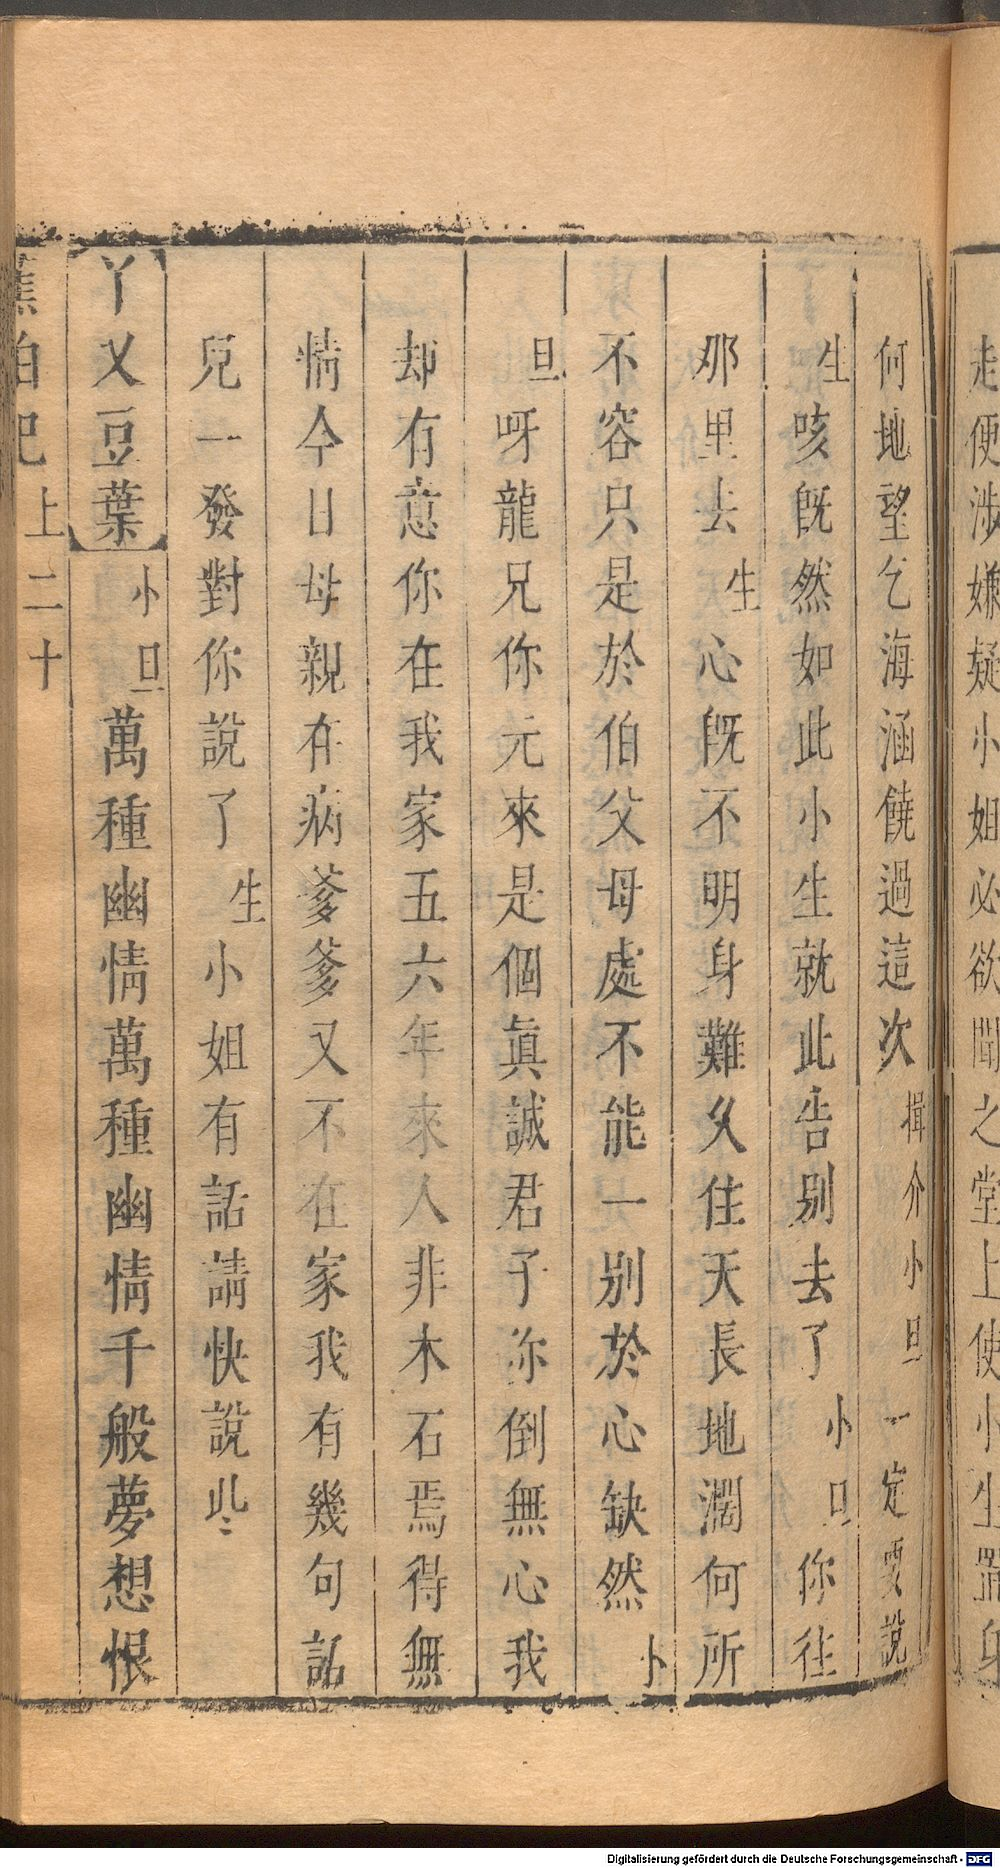 走便涉嫌疑小姐必欲聞之堂上使小生
何地望乞海涵饒過這次揖介小旦一定要說
生咳旣然如此小生就此告別去了小旦你往
那里去生心旣不明身難久住天長地濶何所
不容只是於伯父母處不能一別於心缺然小
旦呀龍兄你元來是個眞誠君子你倒無心我
却有意你在我家五六年來人非木石焉得無
情今日母親有病爹爹又不在家我有幾句話
兒一發對你說了生小姐有話請快說些
丫叉豆葉小旦萬種幽情萬種幽情千般夢想恨
蕉帕記上二十
Digitalisierung gefördert durch die Deutsche Forschungsgemeinschaft - DFG